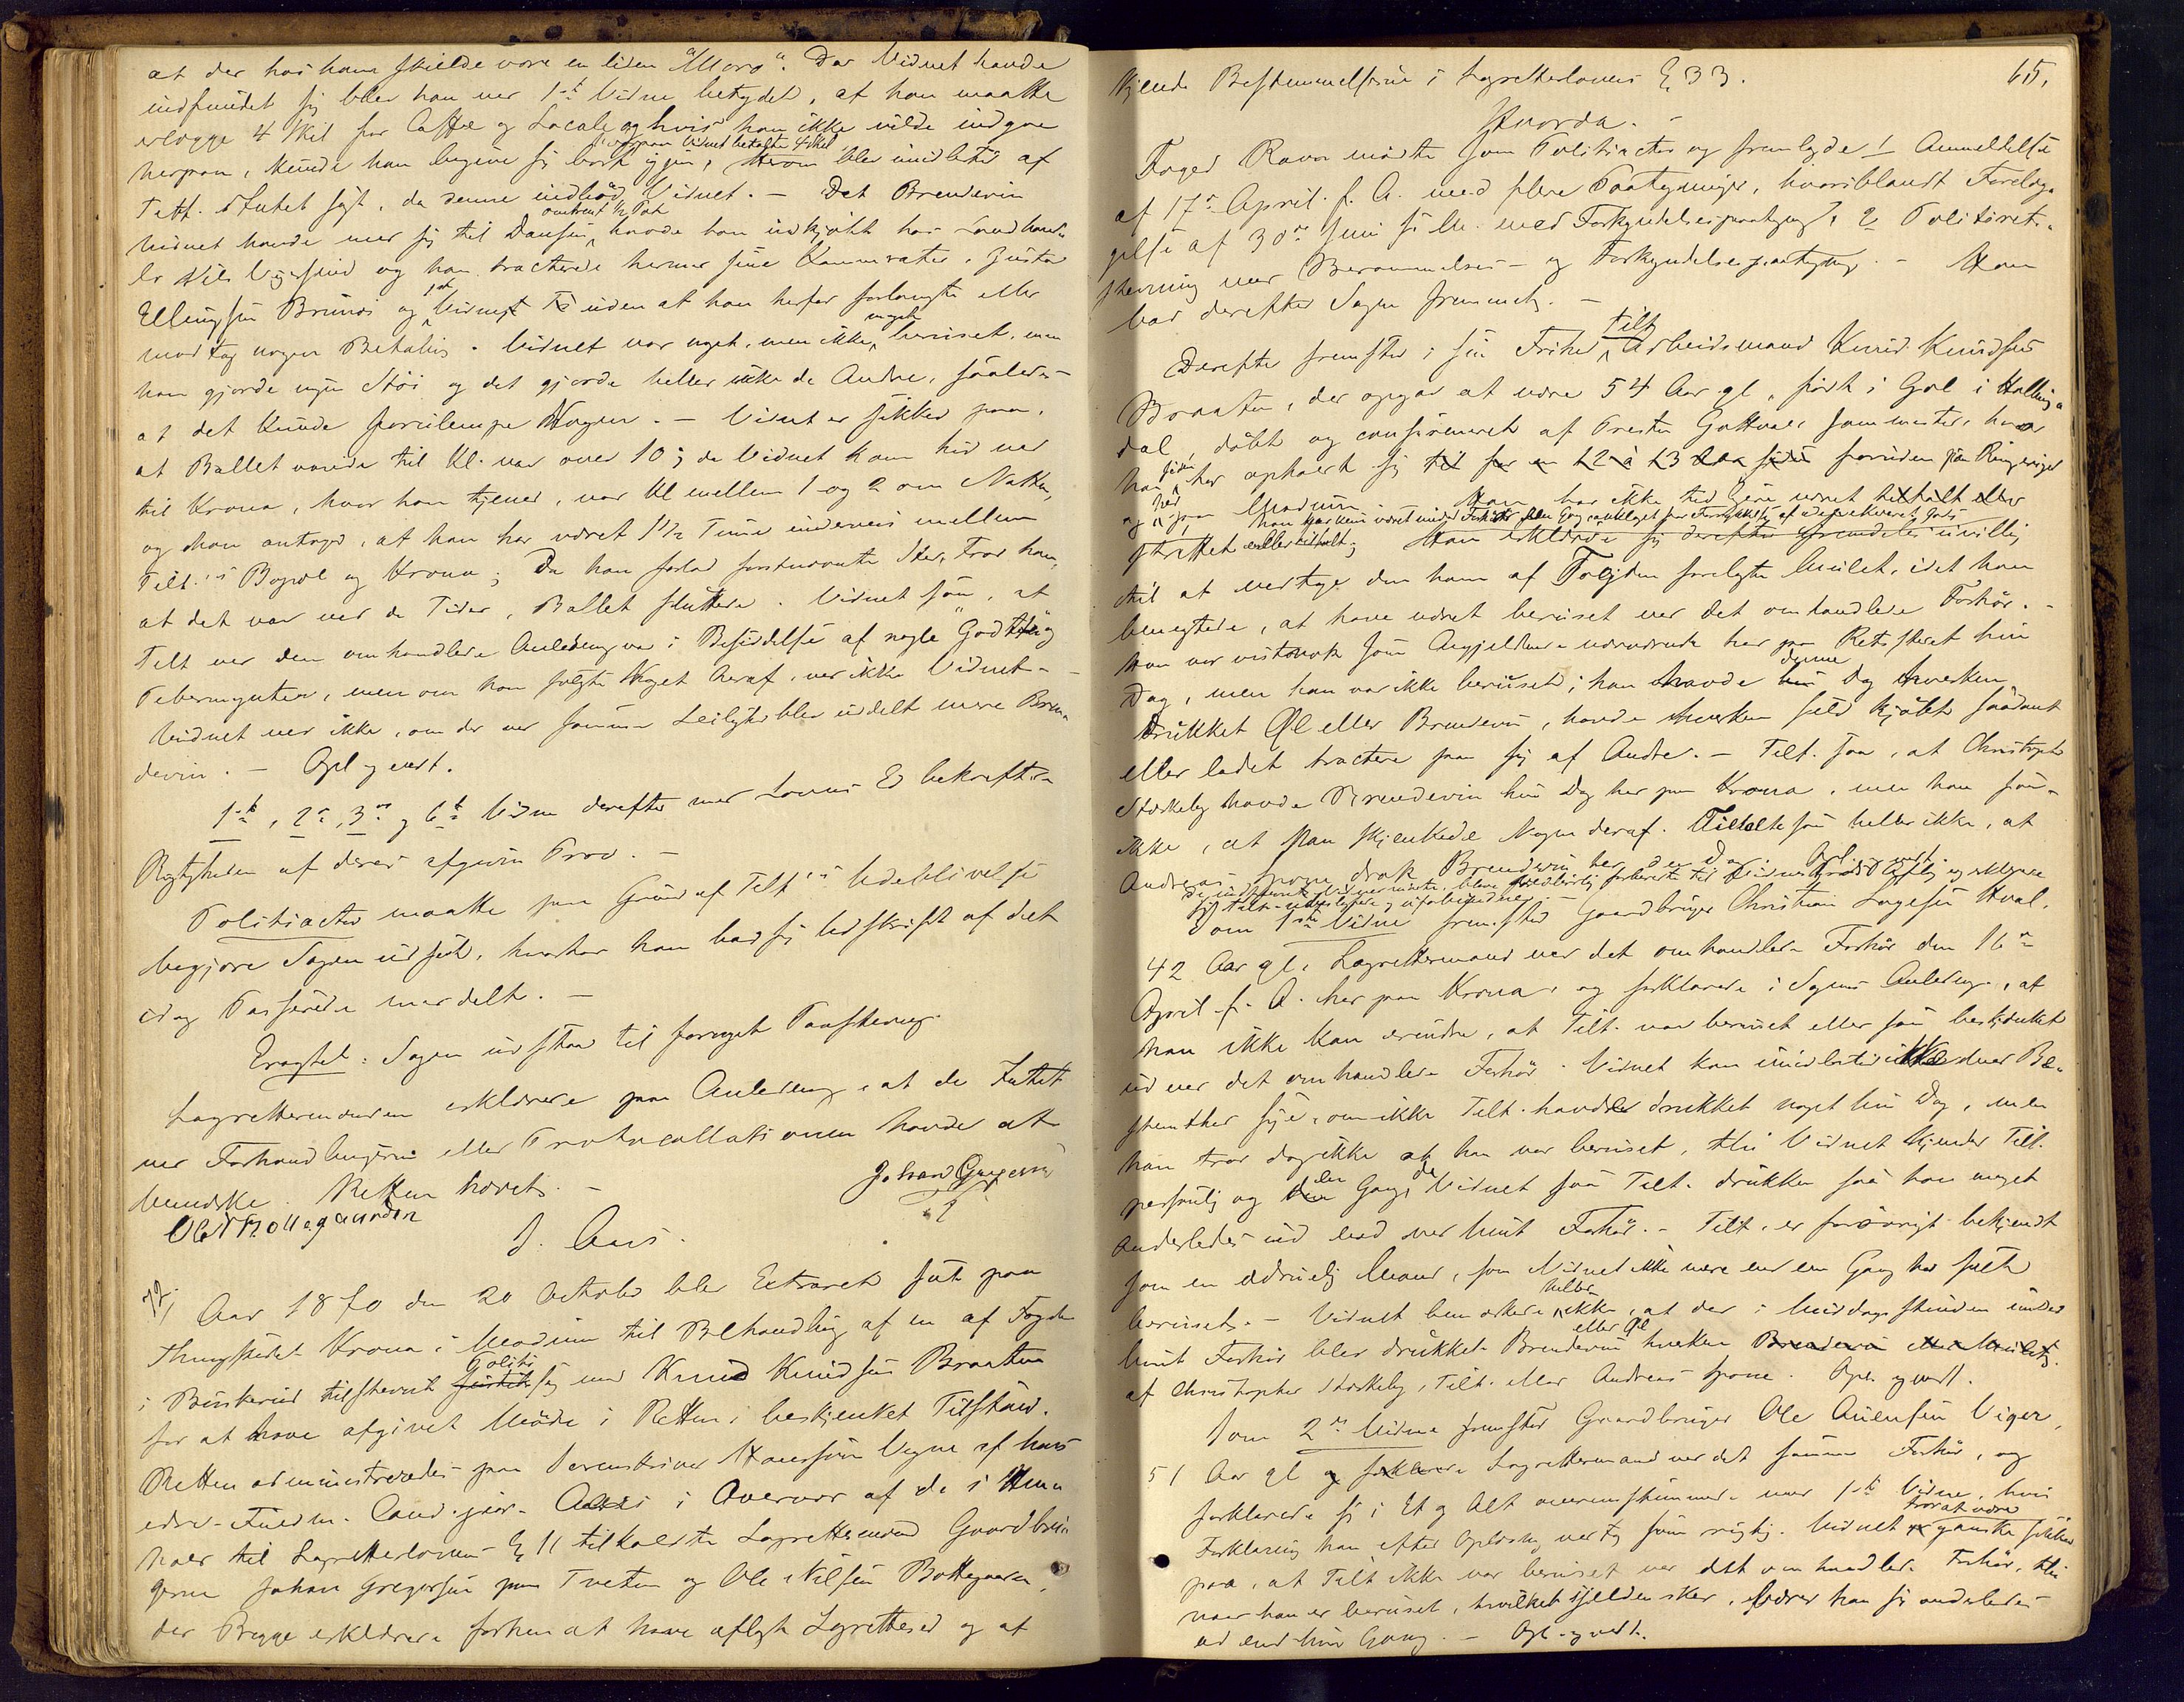 at der hos ham skulde være en liden "Moro". Da Vidnet havde
indfundet sig blev han ved 1ste Vidne betydet, at han maatte
erlægge 4 Skil for Caffe og Locale og hvis han ikke vilde indgaa
herpaa, kunde han begive sig bort igjen,
hvorpaa Vidnet betalte 4 Skil
blev imidlertid af
Tilt. Intet sagt, da denne indbød Vidnet. – Det Brændevin
omtrent ½ Pot
Vidnet havde med sig til Dansen, havde han indkjøbt hos Landhand-
ler Nils Vigersund og han tracterede hermed sine Kammerater, Gustav
Ellingsen Brunæs og 1ste Vidne uden at han herfor forlangte eller
modtog nogen Betaling. Vidnet var noget, men ikke meget beruset, men
han gjorde ingen Støi og det gjorde heller ikke de Andre, saaledes
at det kunde forulempe Nogen. – Vidnet er sikker paa,
at Ballet varede til Kl. var over 10; da Vidnet kom hid ned
til Krona, hvor han tjener, var Kl mellem 1 og 2 om Natten,
og han antager, at han har været 1½ Time underveis mellem
Tilt.s Bopæl og Krona; Da han forlod førstnævnte Sted, tror han,
at det var ved de Tider, Ballet sluttede. Vidnet saa, at
Tilt ved den omhandlede Anledning var i Besiddelse af nogle "Godt" og
Pebermynter, men om han solgte Noget heraf, ved ikke Vidnet. –
Vidnet ved ikke, om der ved samme Leilighed blev uddelt mere Bræn-
devin. – Opl. og vedt.
1ste, 2det, 3die og 6te Vidne derefter med Lovens Ed bekræftede
Rigtigheden af deres afgivne Prov. –
Politiactor maatte paa Grund af Tilt.s Udeblivelse
begjære Sagen udsat, hvorhos han bad sig Udskrift af det
idag Passerede meddelt. –
Eragtet: Sagen udstaar til fornyet Paastevning.
Lagrettemændene erklærede paa Anledning, at de Intet
ved Forhandlingerne eller Protocollationen havde at
bemærke. Retten hævet. –
Johan Gregersen
Ole N Bottegaarden
J. Aars.
72, Aar 1870 den 20 October blev Extraret sat paa
Thingstedet Krona i Modum til Behandling af en af Fogden
i Buskerud tilstevnt Politisag mod Knud Knudsen Braaten
for at have afgivet Møde i Retten i beskjænket Tilstand.
Retten administreredes paa Sorenskriver Hanssens Vegne af hans
edsv. Fuldm. Cand. jur. Aars i Overvær af de i Hen-
hold til Lagretteloven § 11 tilkaldte Lagrettemænd Gaardbru-
gerne Johan Gregersen paa Tveten og Ole Nilsen Bottegaarden,
der Begge erklærede forhen at have aflagt Lagretteed og at
65,
kjende Bestemmelserne i Lagrettelovens § 33.
Hvorda. –
Foged Ravn mødte som Politiactor og fremlagde 1 Anmeldelse
af 17de April f. A. med flere Paategninger, hvoriblandt Forelæg-
gelse af 30de Juni s. A. med Forkyndelsespaategning, 2 Politirets-
stevning med Berammelses- og Forkyndelsespaategning. – Han
bad derefter Sagen fremmet. –
Derefter fremstod i sin Frihed Tilt. Arbeidsmand Knud Knudsen
Braaten, der opgav at være 54 Aar gl., født i Gol i Halling-
dal, døbt og confirmeret af Præsten sammesteds, hvor
han siden har opholdt sig foruden paa Ringerige
og ved paa Modum. Han har ikke tidligere været
straffet eller tiltalt;
Han erklærede sig derefter fremdeles uvillig
til at vedtage den ham af Fogden forelagte Mulct, idet han
benegtede, at have været beruset ved det omhandlede Forhør. –
Han var vistnok som Angjældende nærværende her paa Retsstedet hin
Dag, men han var ikke beruset; han havde denne Dag hverken
drukket Øl eller Brændevin, havde hverken selv kjøbt saadant
eller ladet tractere paa sig af Andre. – Tilt. saa, at Christopher
Stærkeby havde Brændevin hin Dag her paa Krona, men han saa
ikke, at han skjænkede Nogen deraf. Tiltalte saa heller ikke, at
Andreas Spone drak Brændevin her den Dag. Opl. og vedt.
Som 1ste Vidne fremstod Gaardbruger Christian Lagesen Hval,
42 Aar gl., Lagrettemand ved det omhandlede Forhør den 16de
April f. A. her paa Krona, og forklarede i Sagens Anledning, at
han ikke kan erindre, at Tilt. var beruset eller saa beskjænket
ud ved det omhandlede Forhør. Vidnet kan imidlertid ikke med Be-
stemthed sige, om ikke Tilt. havde drukket noget hin Dag, men
han tror dog ikke at han var beruset, thi Vidnet kjender Tilt.
personlig og den Gang, da Vidnet saa Tilt. drukken saa han meget
anderledes ud end ved hint Forhør. – Tilt. er forøvrigt bekjendt
som en ædruelig Mand, som Vidnet ikke mere end en Gang har seet
beruset. – Vidnet bemærkede heller ikke, at der i Middagsstunden under
hint Forhør blev drukket Brændevin eller Øl hverken
af Christopher Stærkeby, Tilt. eller Andreas Spone. Opl. og vedt.
Som 2det Vidne fremstod Gaardbruger Ole Auensen Viger,
51 Aar gl Lagrettemand ved det samme Forhør, og
forklarede sig i Et og Alt overensstemmende med 1ste Vidne, hvis
Forklaring han efter Oplæsning vedtog som rigtig. Vidnet tror at være ganske sikker
paa, at Tilt ikke var beruset ved det omhandlede Forhør, thi
naar han er beruset, hvilket sjelden sker, ser han sig anderledes
ud end hin Gang. – Opl. og vedt.